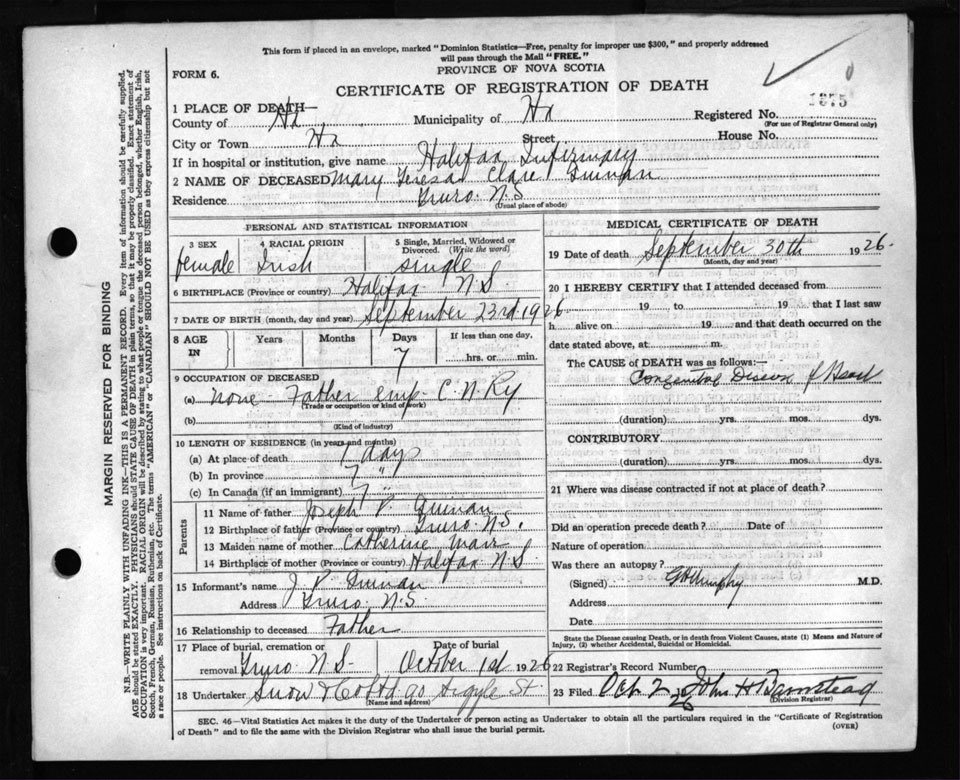 This form if placed in an envelope, marked "Dominion Statistics—Free, penalty for improper use $300," and properly addressed
will pass through the Mail "FREE."
FORM 6.
PROVINCE OF NOVA SCOTIA
CERTIFICATE OF REGISTRATION OF DEATH
1375
1 PLACE OF DEATH—
County of Hx Municipality of Hx Registered No.
(For use of Registrar General only)
City or Town Hx Street House No.
If in hospital or institution, give name Halifax Infirmary
2 NAME OF DECEASED Mary Teresa Clare Quinan
Residence Truro N.S.
(Usual place of abode)
PERSONAL AND STATISTICAL INFORMATION
3 SEX
female
4 RACIAL ORIGIN
Irish
5 Single, Married, Widowed or
Divorced. (Write the word)
single
6 BIRTHPLACE (Province or country) Halifax N.S.
7 DATE OF BIRTH (month, day and year) September 23rd 1926
8 AGE
IN
Years Months Days If less than one day,
7 hrs. or min.
9 OCCUPATION OF DECEASED
(a) none - Father emp. C.N.Ry
(Trade or occupation or kind of work)
(b)
(Kind of industry)
10 LENGTH OF RESIDENCE (in years and months)
(a) At place of death 7 days
(b) In province 7 "
(c) In Canada (if an immigrant) 7 "
Parents
11 Name of father Joseph P. Quinan
12 Birthplace of father (Province or country) Truro N.S.
13 Maiden name of mother Catherine
14 Birthplace of mother (Province or country) Halifax N.S
15 Informant's name J. P. Quinan
Address Truro N.S
16 Relationship to deceased Father
17 Place of burial, cremation or Date of burial
removal Truro N.S. October 1st 1926
18 Undertaker Snow & Co Ltd 90 Argyle St.
(Name and address)
MEDICAL CERTIFICATE OF DEATH
19 Date of death September 30th 1926.
(Month, day and year)
20 I HEREBY CERTIFY that I attended deceased from
19 to 19 that I last saw
h alive on 19 and that death occurred on the
date stated above, at m.
The CAUSE of DEATH was as follows:
Congenital Disease of Heart
(duration) yrs. mos. dys.
CONTRIBUTORY
(duration) yrs. mos. dys.
21 Where was disease contracted if not at place of death?
Did an operation precede death? Date of
Nature of operation
Was there an autopsy?
(Signed) Murphy M.D.
Address
Date
State the Disease causing Death, or in death from Violent Causes, state (1) Means and Nature of
Injury, (2) whether Accidental, Suicidal or Homicidal.
22 Registrar's Record Number
23 Filed Oct. 2 26 John H Barnstead
(Division Registrar)
SEC. 46—Vital Statistics Act makes it the duty of the Undertaker or person acting as Undertaker to obtain all the particulars required in the "Certificate of Registration
of Death" and to file the same with the Division Registrar who shall issue the burial permit.
(OVER)
MARGIN RESERVED FOR BINDING
N.B.—WRITE PLAINLY WITH UNFADING INK—THIS IS A PERMANENT RECORD. Every item of information should be carefully supplied.
AGE should be stated EXACTLY. PHYSICIANS should STATE CAUSE OF DEATH in plain terms, so that it may be properly classified. Exact statement of
OCCUPATION is very important. RACIAL ORIGIN will be described by stating to what people or tongue the deceased person belonged, whether English, Irish,
Scotch, French, German, Russian, Ruthenian, etc. The terms "AMERICAN" or "CANADIAN" SHOULD NOT BE USED as they express citizenship but not
a race or people. See instructions on back of Certificate.